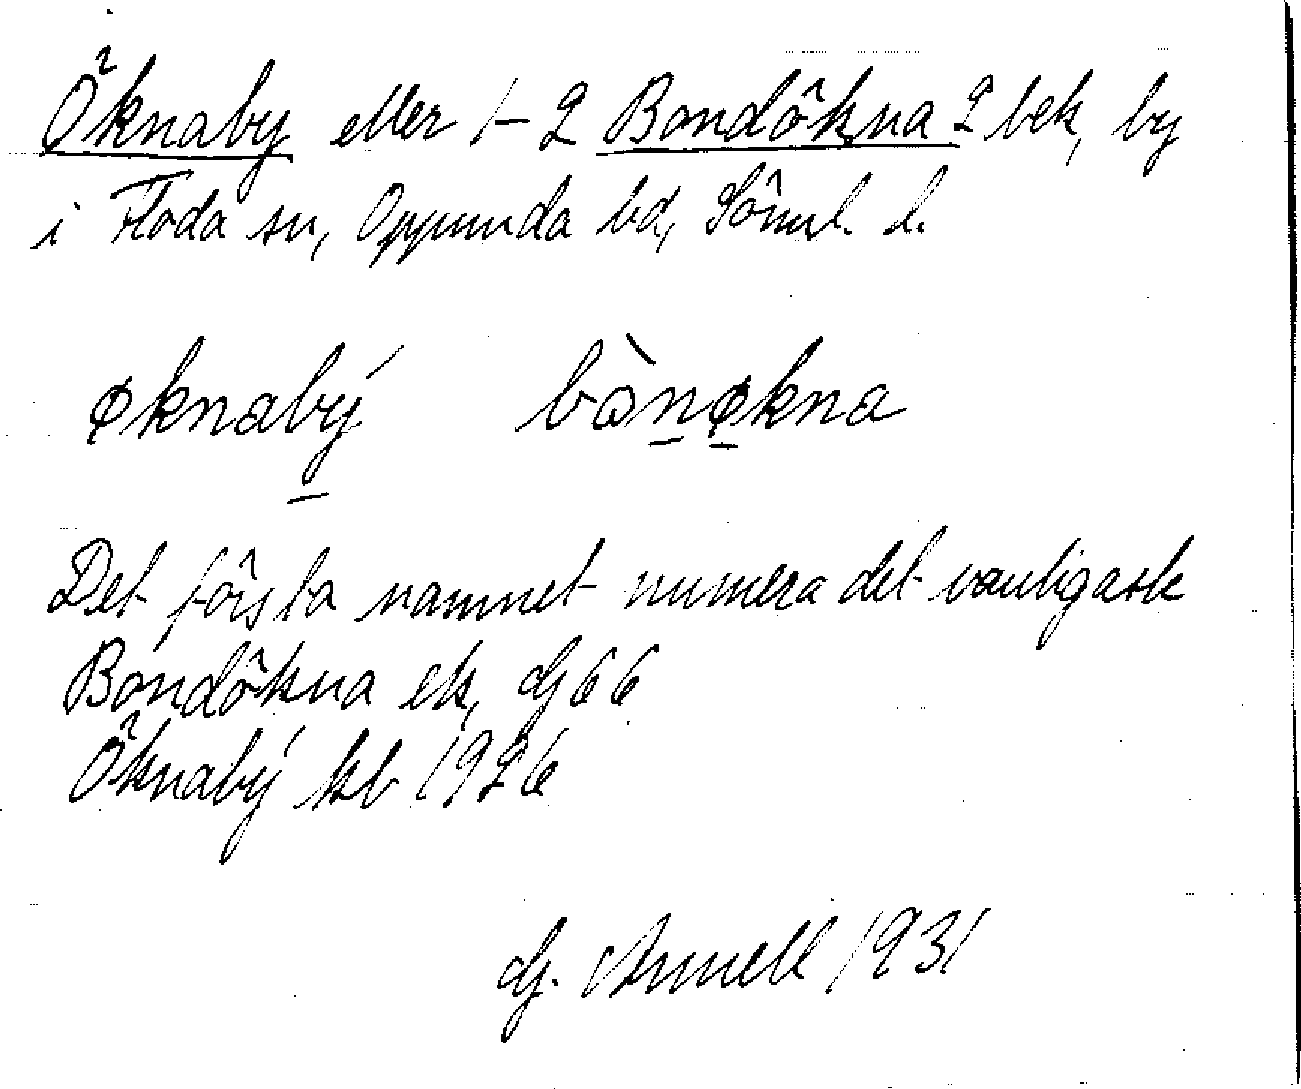 Öknaby eller 1-2 Bondökna 2 bek, by
i Floda sn, Oppunda hd, Sörml. l.
øknabý bònøkna
Det första namnet numera det vanligaste
Bondökna ek, Gj 66
Öknabý kb 1926
Gj. Annell 1931